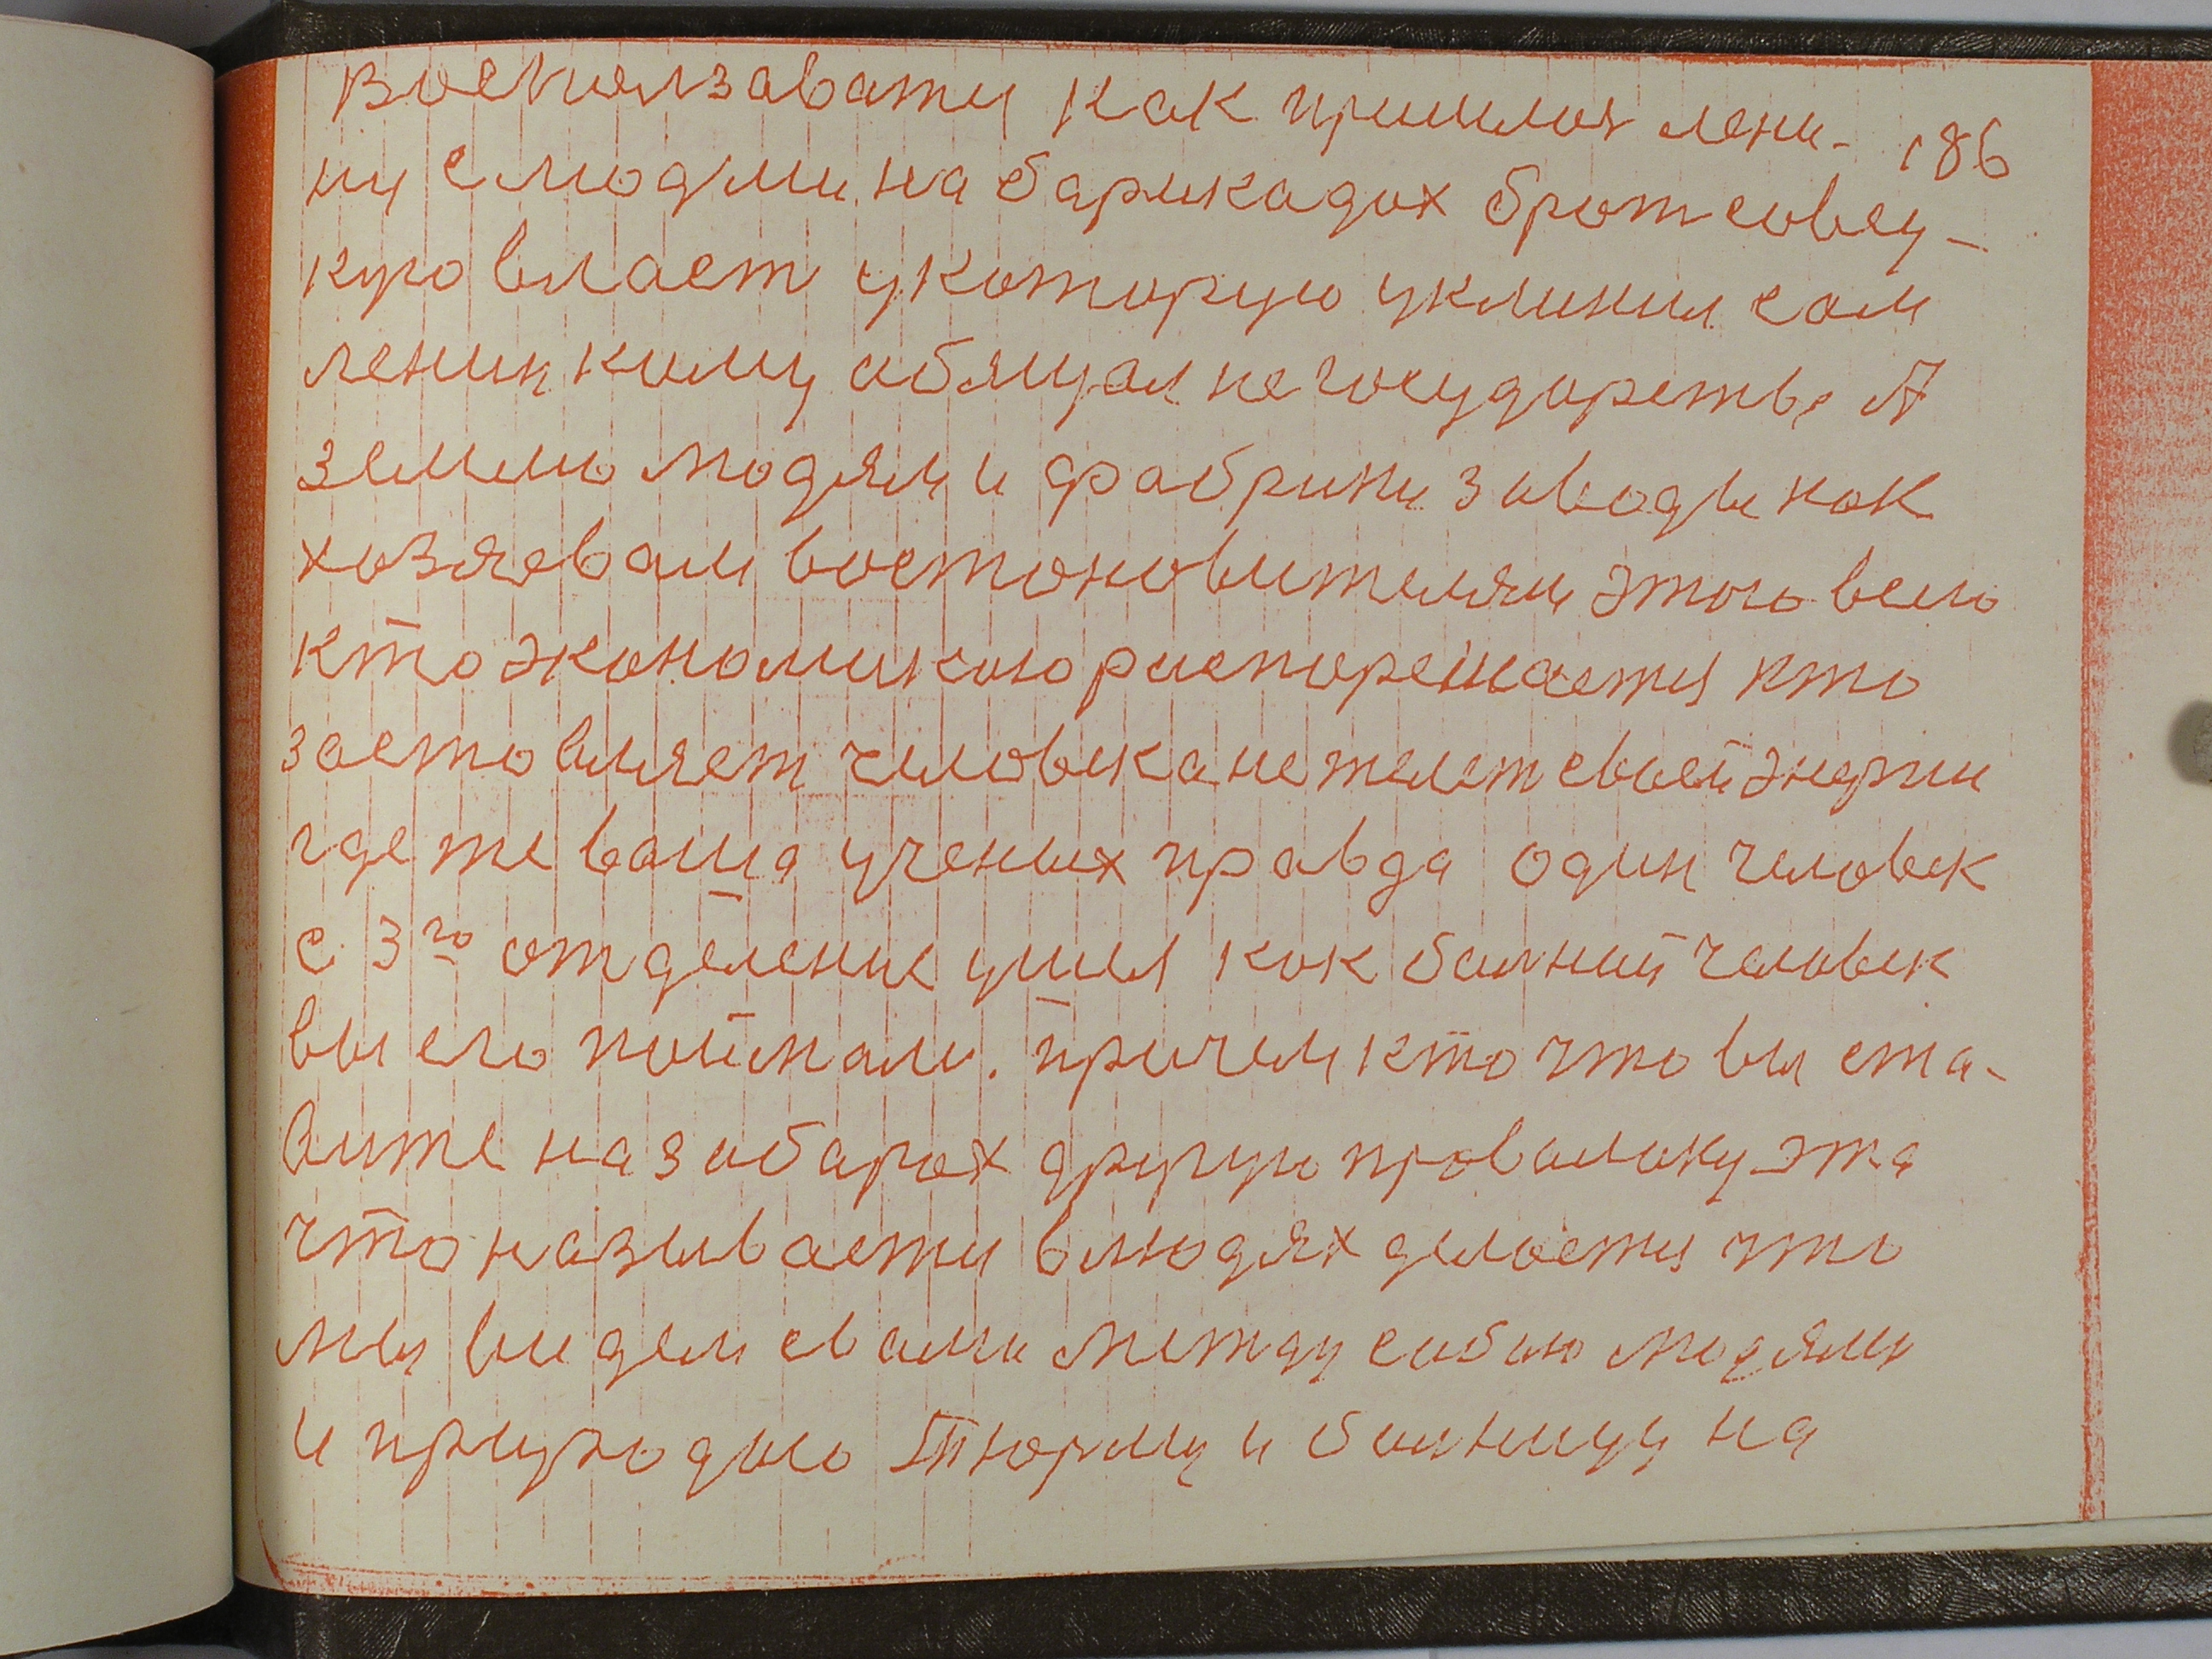 Воспользаватц как пришлоя лени- 186
ну с людми на барикадох брот совец-
кую власт у которую уклинил сам
ленин кому обящал не государству А
землю людям и фабрики заводы как
хозяевам востоновителям этого всего
кто экономикою распорежается кто
заставляет человека не жалет своей энергии
где же ваша ученых правда один человек
с 3го отделение ушел как болний человек
вы его поймали. причем кто что вы ста-
вите на забарах другую провалоку эта
что називаетця в людях делаетця что
мы видем с вами между собою людями
и природою Тюрму и болницу на